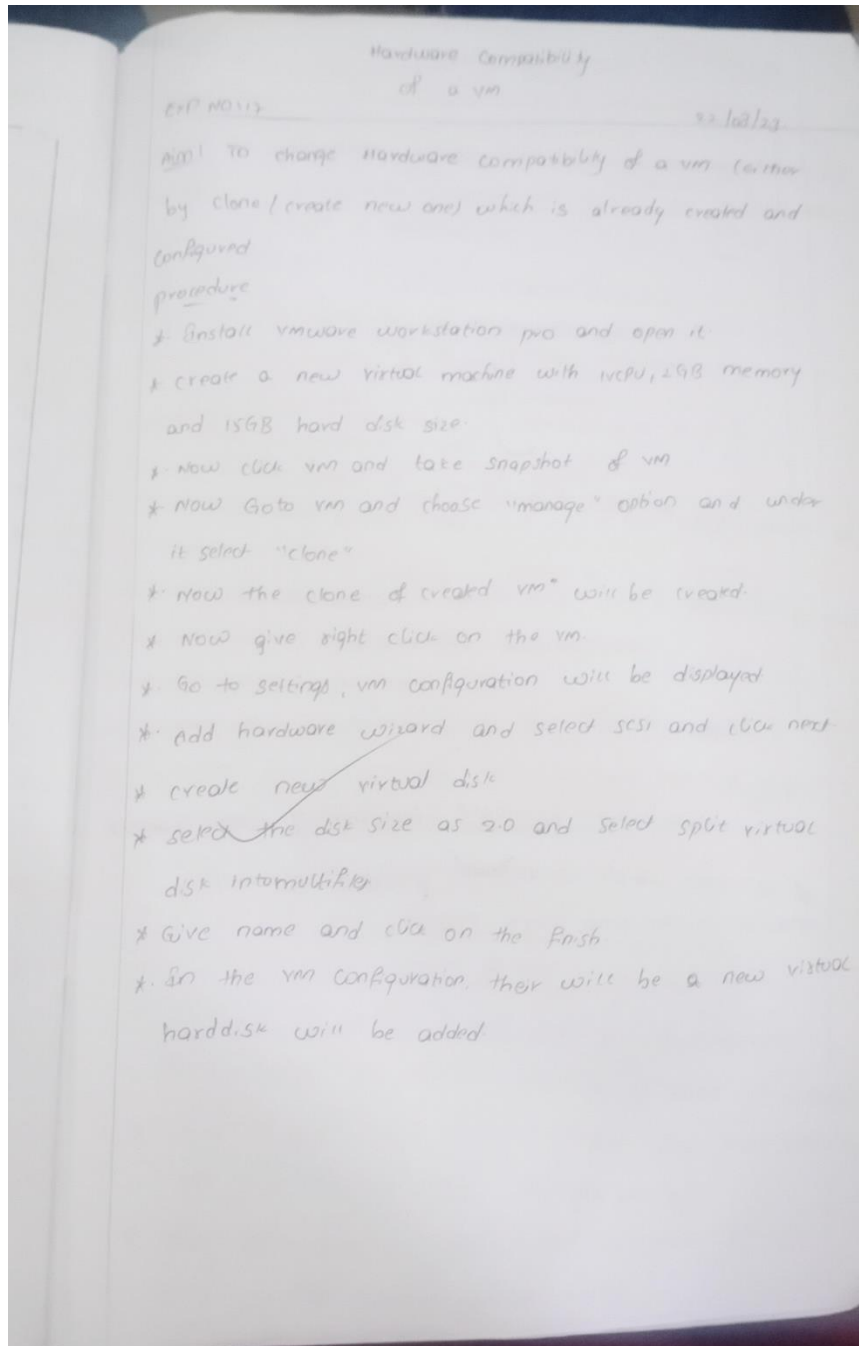 Hardware Compatibility
of a vm
EXP NO:17
22/08/23
Aim: To change Hardware compatibility of a vm (either
by clone / create new one) which is already created and
configured
procedure
* Install vmware workstation pro and open it.
* create a new virtual machine with 1vcpu, 2GB memory
and 15GB hard disk size.
* Now click vm and take snapshot of vm
* Now Goto vm and choose "manage" option and under
it select "clone"
* Now the clone of created vm" will be created.
* Now give right click on the vm.
* Go to settings, vm configuration will be displayed
* Add hardware wizard and select scsi and click next
* create new virtual disk
* select the disk size as 2.0 and select split virtual
disk into
* Give name and click on the finish
* In the vm configuration, their will be a new virtual
harddisk will be added.